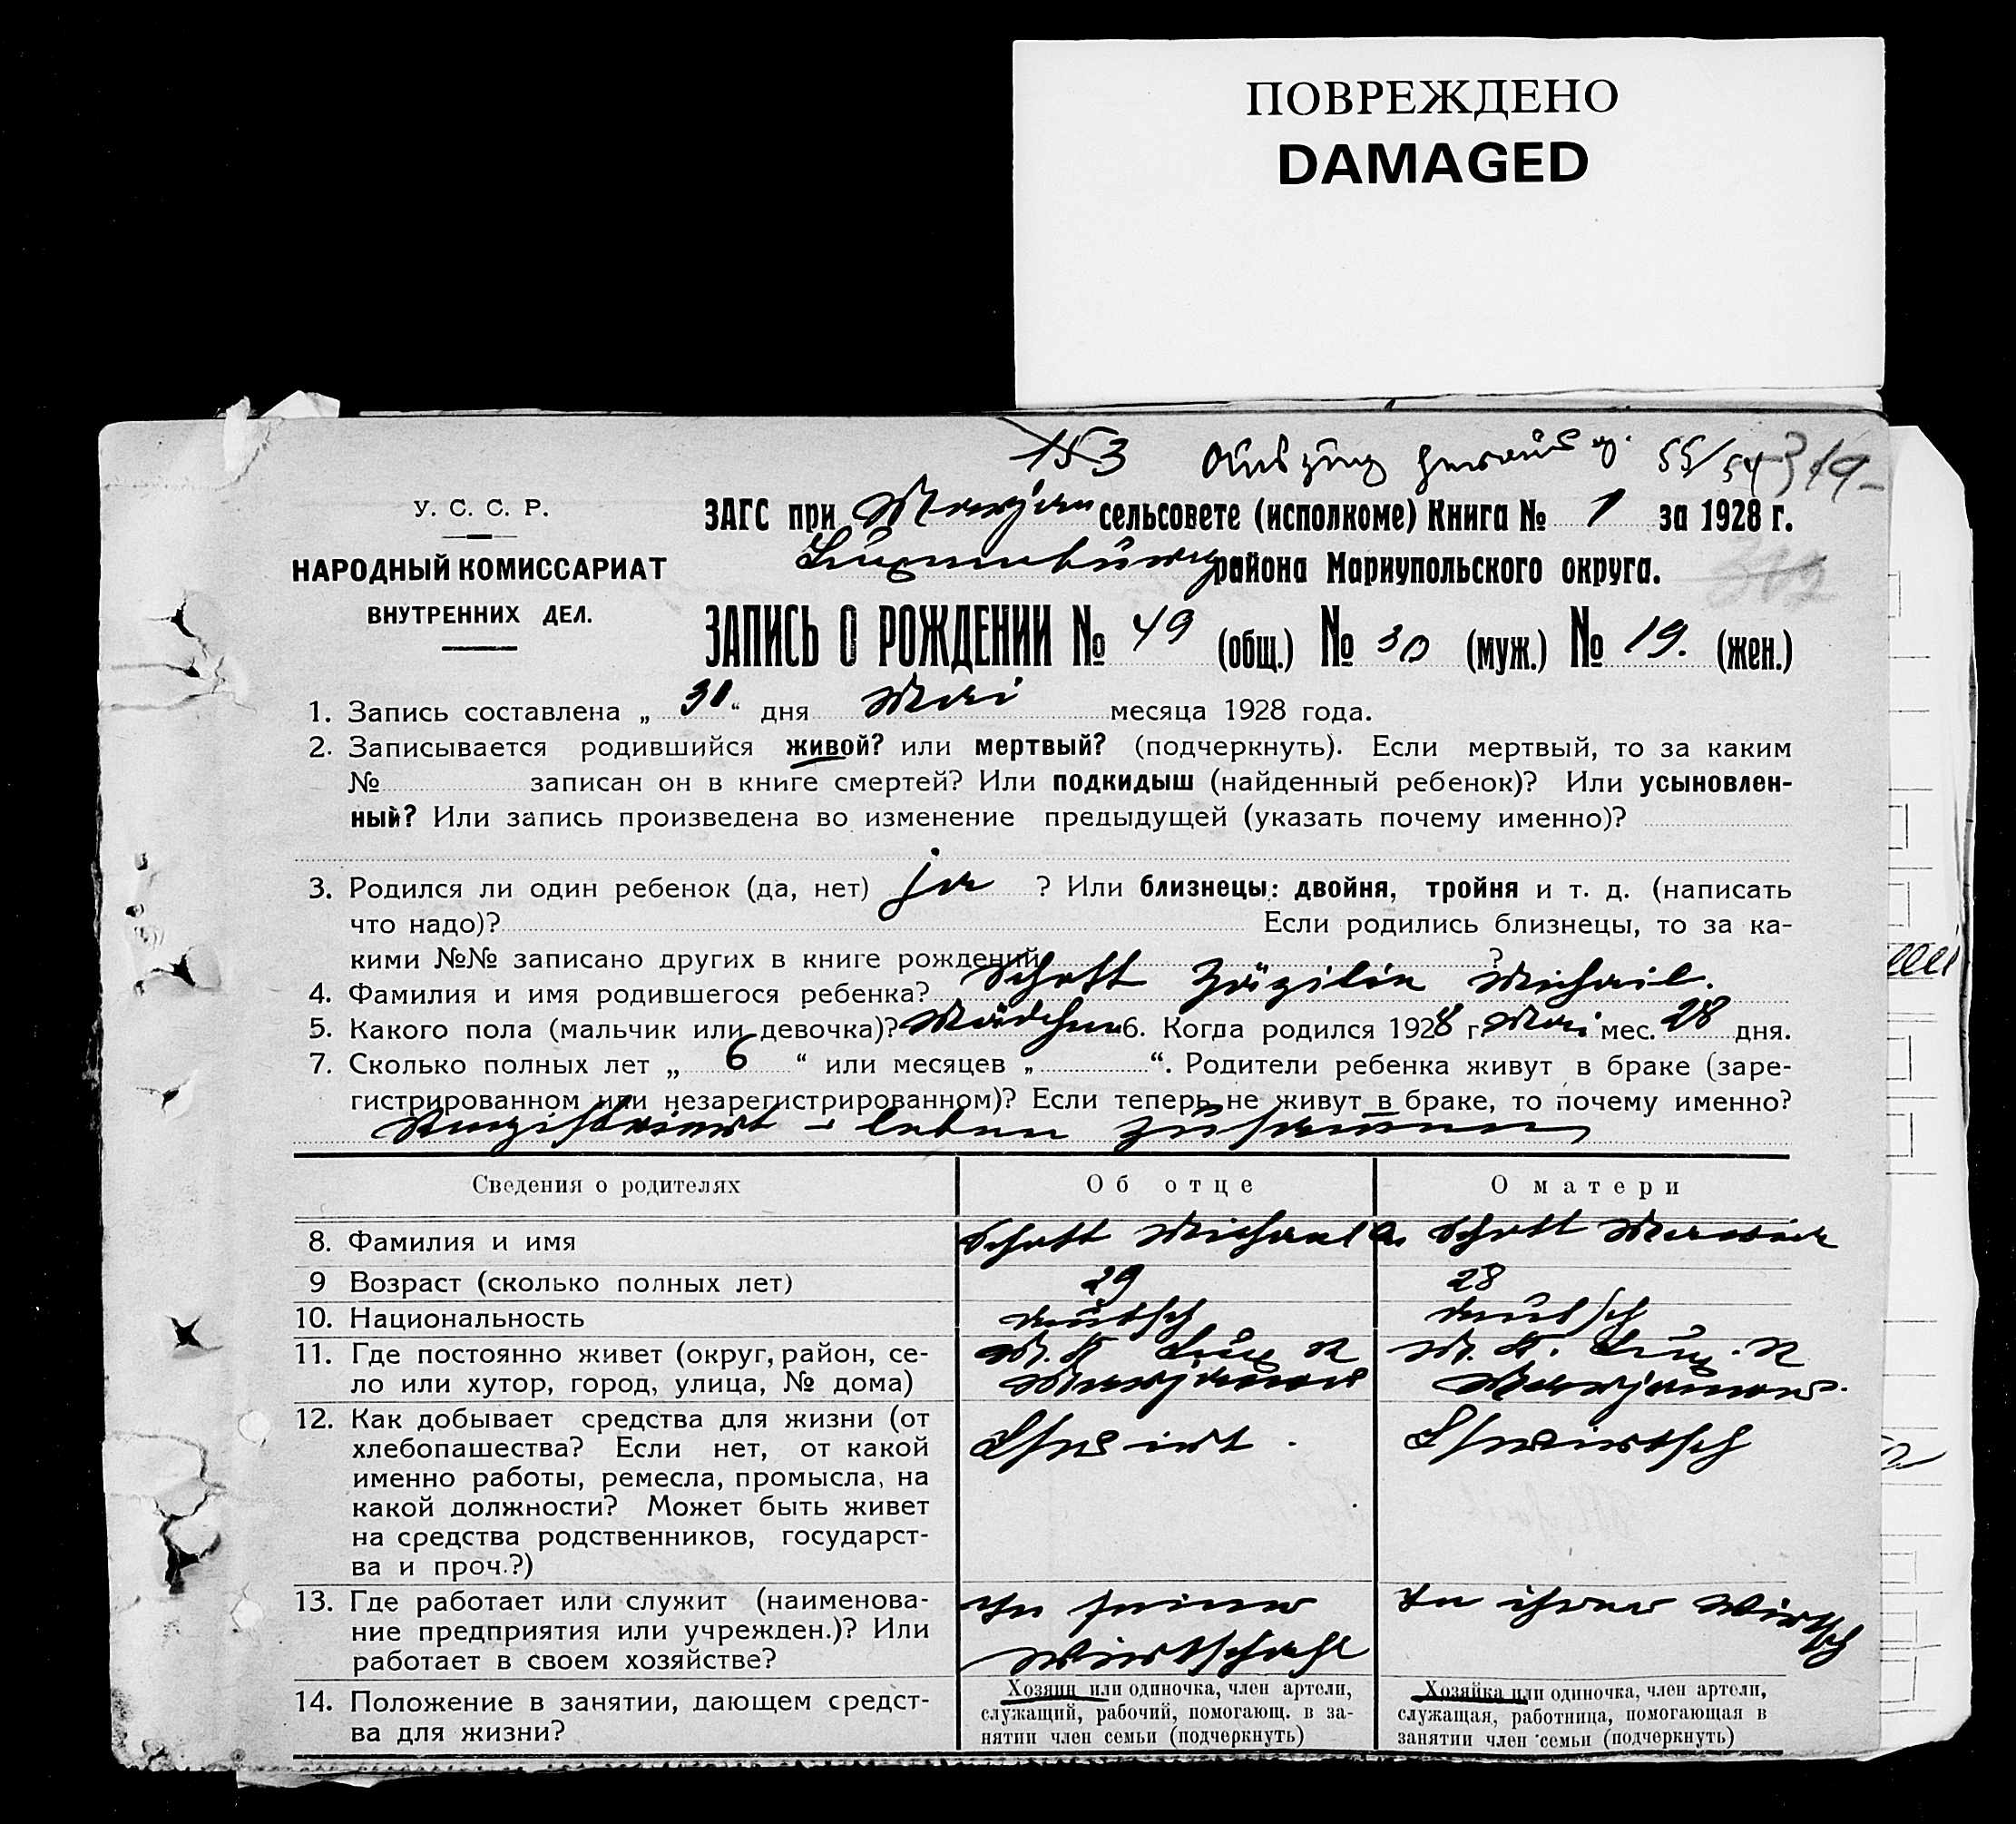 ПОВРЕЖДЕНО
DAMAGED
153 55/54 319-
У. С. С. Р.
НАРОДНЫЙ КОМИССАРИАТ
ВНУТРЕННИХ ДЕЛ.
ЗАГС при Marjan сельсовете (исполкоме) Книга № 1 за 1928 г.
Luxemburg района Мариупольского округа.
302
ЗАПИСЬ О РОЖДЕНИИ № 49 (общ.) № 30 (муж.) № 19. (жен.)
1. Запись составлена „ 31 “ дня Mai месяца 1928 года.
2. Записывается родившийся живой? или мертвый? (подчеркнуть). Если мертвый, то за каким
№ записан он в книге смертей? Или подкидыш (найденный ребенок)? Или усыновлен-
ный? Или запись произведена во изменение предыдущей (указать почему именно)?
3. Родился ли один ребенок (да, нет) ja ? Или близнецы: двойня, тройня и т. д. (написать
что надо)? Если родились близнецы, то за ка-
кими №№ записано других в книге рождений ?
4. Фамилия и имя родившегося ребенка? Schott Zäzilia Michail.
5. Какого пола (мальчик или девочка)? Mädchen 6. Когда родился 1928 г. Mai мес. 28 дня.
7. Сколько полных лет „ 6 “ или месяцев „ “. Родители ребенка живут в браке (заре-
гистрированном или незарегистрированном)? Если теперь не живут в браке, то почему именно?
Registriert - leben zusammen
Сведения о родителях Об отце О матери
8. Фамилия и имя Schott Michael Schott Maria
9 Возраст (сколько полных лет) 29 28
10. Национальность deutsch deutsch
11. Где постоянно живет (округ, район, се- M. K. Lux R M. K. Lux. R
ло или хутор, город, улица, № дома) Marjanow Marjanow.
12. Как добывает средства для жизни (от Lhswirt. Lhswirtsch
хлебопашества? Если нет, от какой
именно работы, ремесла, промысла, на
какой должности? Может быть живет
на средства родственников, государст-
ва и проч.?)
13. Где работает или служит (наименова- In seiner In ihrer Wirtsch
ние предприятия или учрежден.)? Или Wirtschaft
работает в своем хозяйстве?
14. Положение в занятии, дающем средст-
ва для жизни?
Хозяин или одиночка, член артели,
служащий, рабочий, помогающ. в за-
нятии член семьи (подчеркнуть)
Хозяйка или одиночка, член артели,
служащая, работница, помогающая в
занятии член семьи (подчеркнуть)